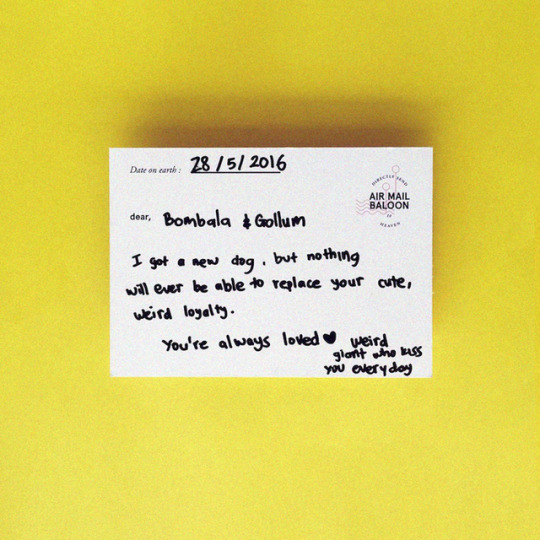 Date on earth : 28/5/2016
DIRECTLY SEND
AIR MAIL
BALOON
TO
HEAVEN
dear, Bombala & Gollum
I got a new dog, but nothing
will ever be able to replace your cute,
weird loyalty.
You're always loved ♥ weird
giant who kiss
you everyday